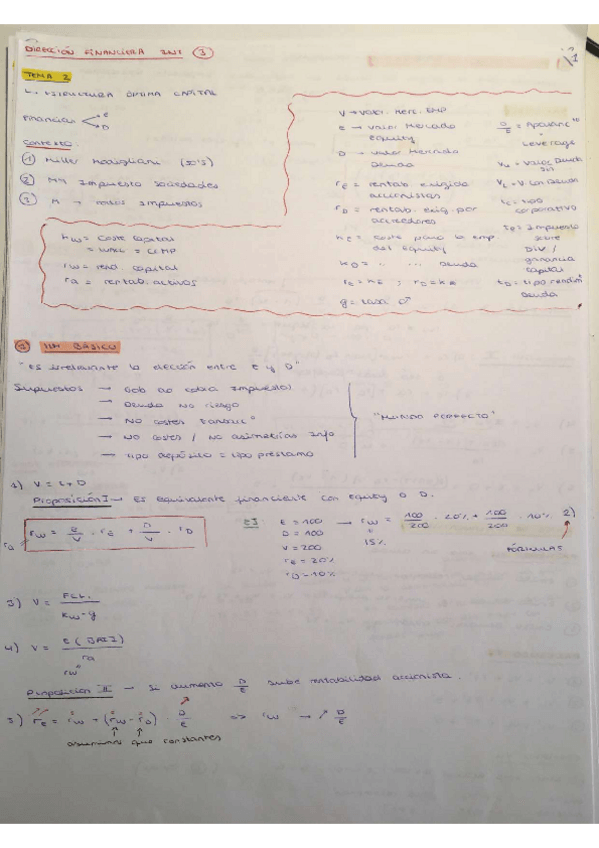 DIRECCIÓN FINANCIERA 3
TEMA 2
ESTRUCTURA ÓPTIMA CAPITAL
Financias E
D
Contexto
1 Miller Modigliani (50's)
2 MM Impuesto sociedades
3 M → todos Impuestos
V → Valor Merc. Emp
E → Valor Mercado
equity
D → Valor Mercado
Deuda
rE = rentab exigida
accionistas
rD = rentab. exig. por
acreedores
KE = coste para la emp.
del Equity
KD = .. .. deuda
rE = KE ; rD = KD
g = tasa
D/E = Apalanc
Leverage
Vu = Valor Deuda
sin
VL = V. con Deuda
tc = tipo
corporativo
tE = Impuesto
sobre
Div. /
ganancia
capital
tD = tipo rendim
deuda
Kw = Coste Capital
= WACC = CCMP
rw = rend. capital
ra = rentab. activos
1 MM BÁSICO
"Es irrelevante la elección entre E y D"
Supuestos → Gob no cobra Impuestos
→ Deuda No riesgo
→ No costes
→ No costes / No asimetrías Info
→ tipo depósito = tipo préstamo
"MUNDO PERFECTO"
1) V = E + D
Proposición I → Es equivalente financiarse con equity o D.
ra rw = E/V · rE + D/V · rD
EJ E = 100 → rw = 100/200 · 20% + 100/200 · 10% 2)
D = 100
15%
V = 200
rE = 20%
rD = 10%
FÓRMULAS
3) V = FCL / Kw - g
4) V = E (BAII) / ra
rw
Proposición II → Si aumenta D/E sube rentabilidad accionista.
5) rE = rw + (rw - rD) · D/E => rw → D/E
asumimos que constantes